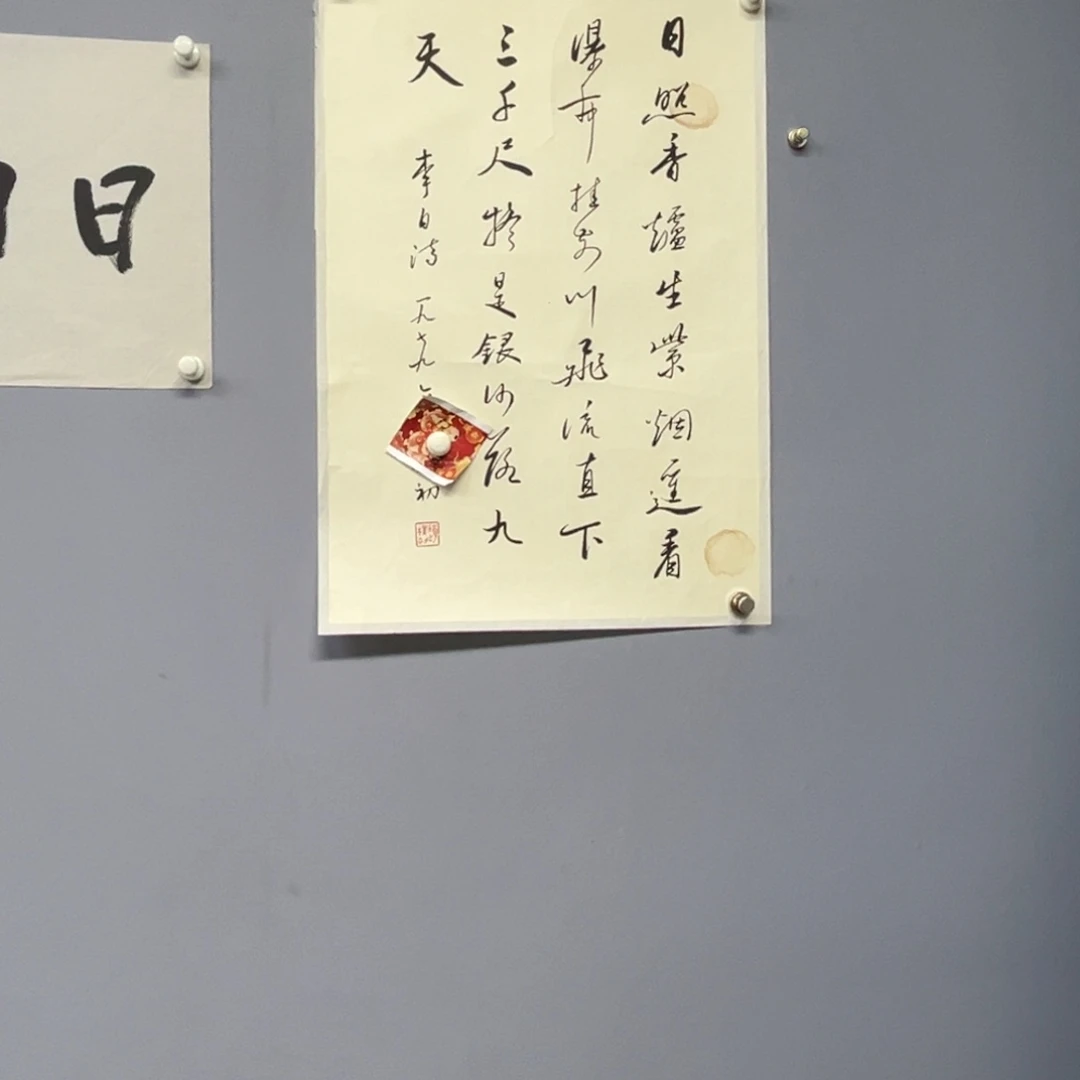 日照香爐生紫烟遥看
瀑布挂前川飛流直下
三千尺疑是銀河落九
天
李白詩 一九七九
初
日